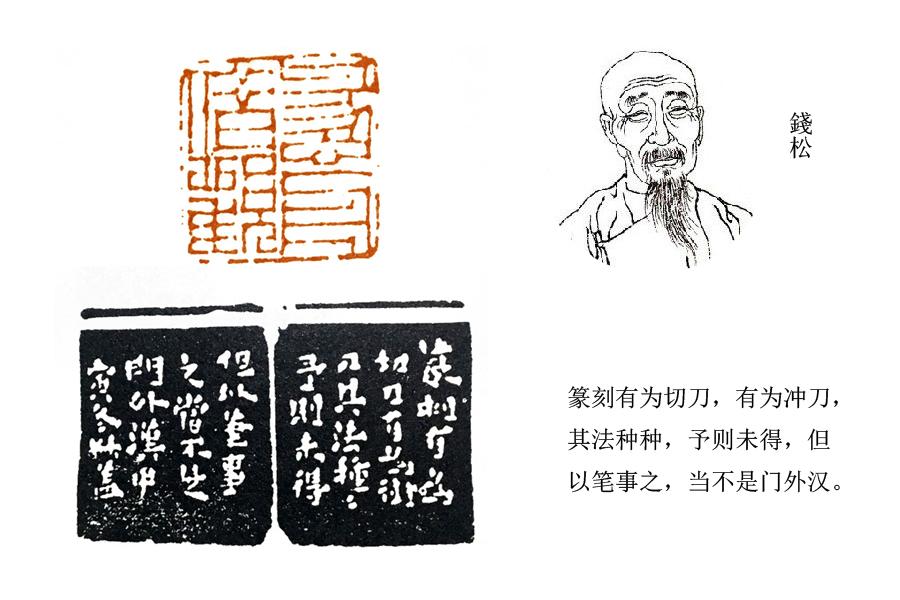 錢松
篆刻有為
切刀有為衝
刀其法種〻
予則未得
但以筆事
之當不是
門外漢甲
寅冬叔蓋
篆刻有为切刀，有为冲刀，
其法种种，予则未得，但
以笔事之，当不是门外汉。